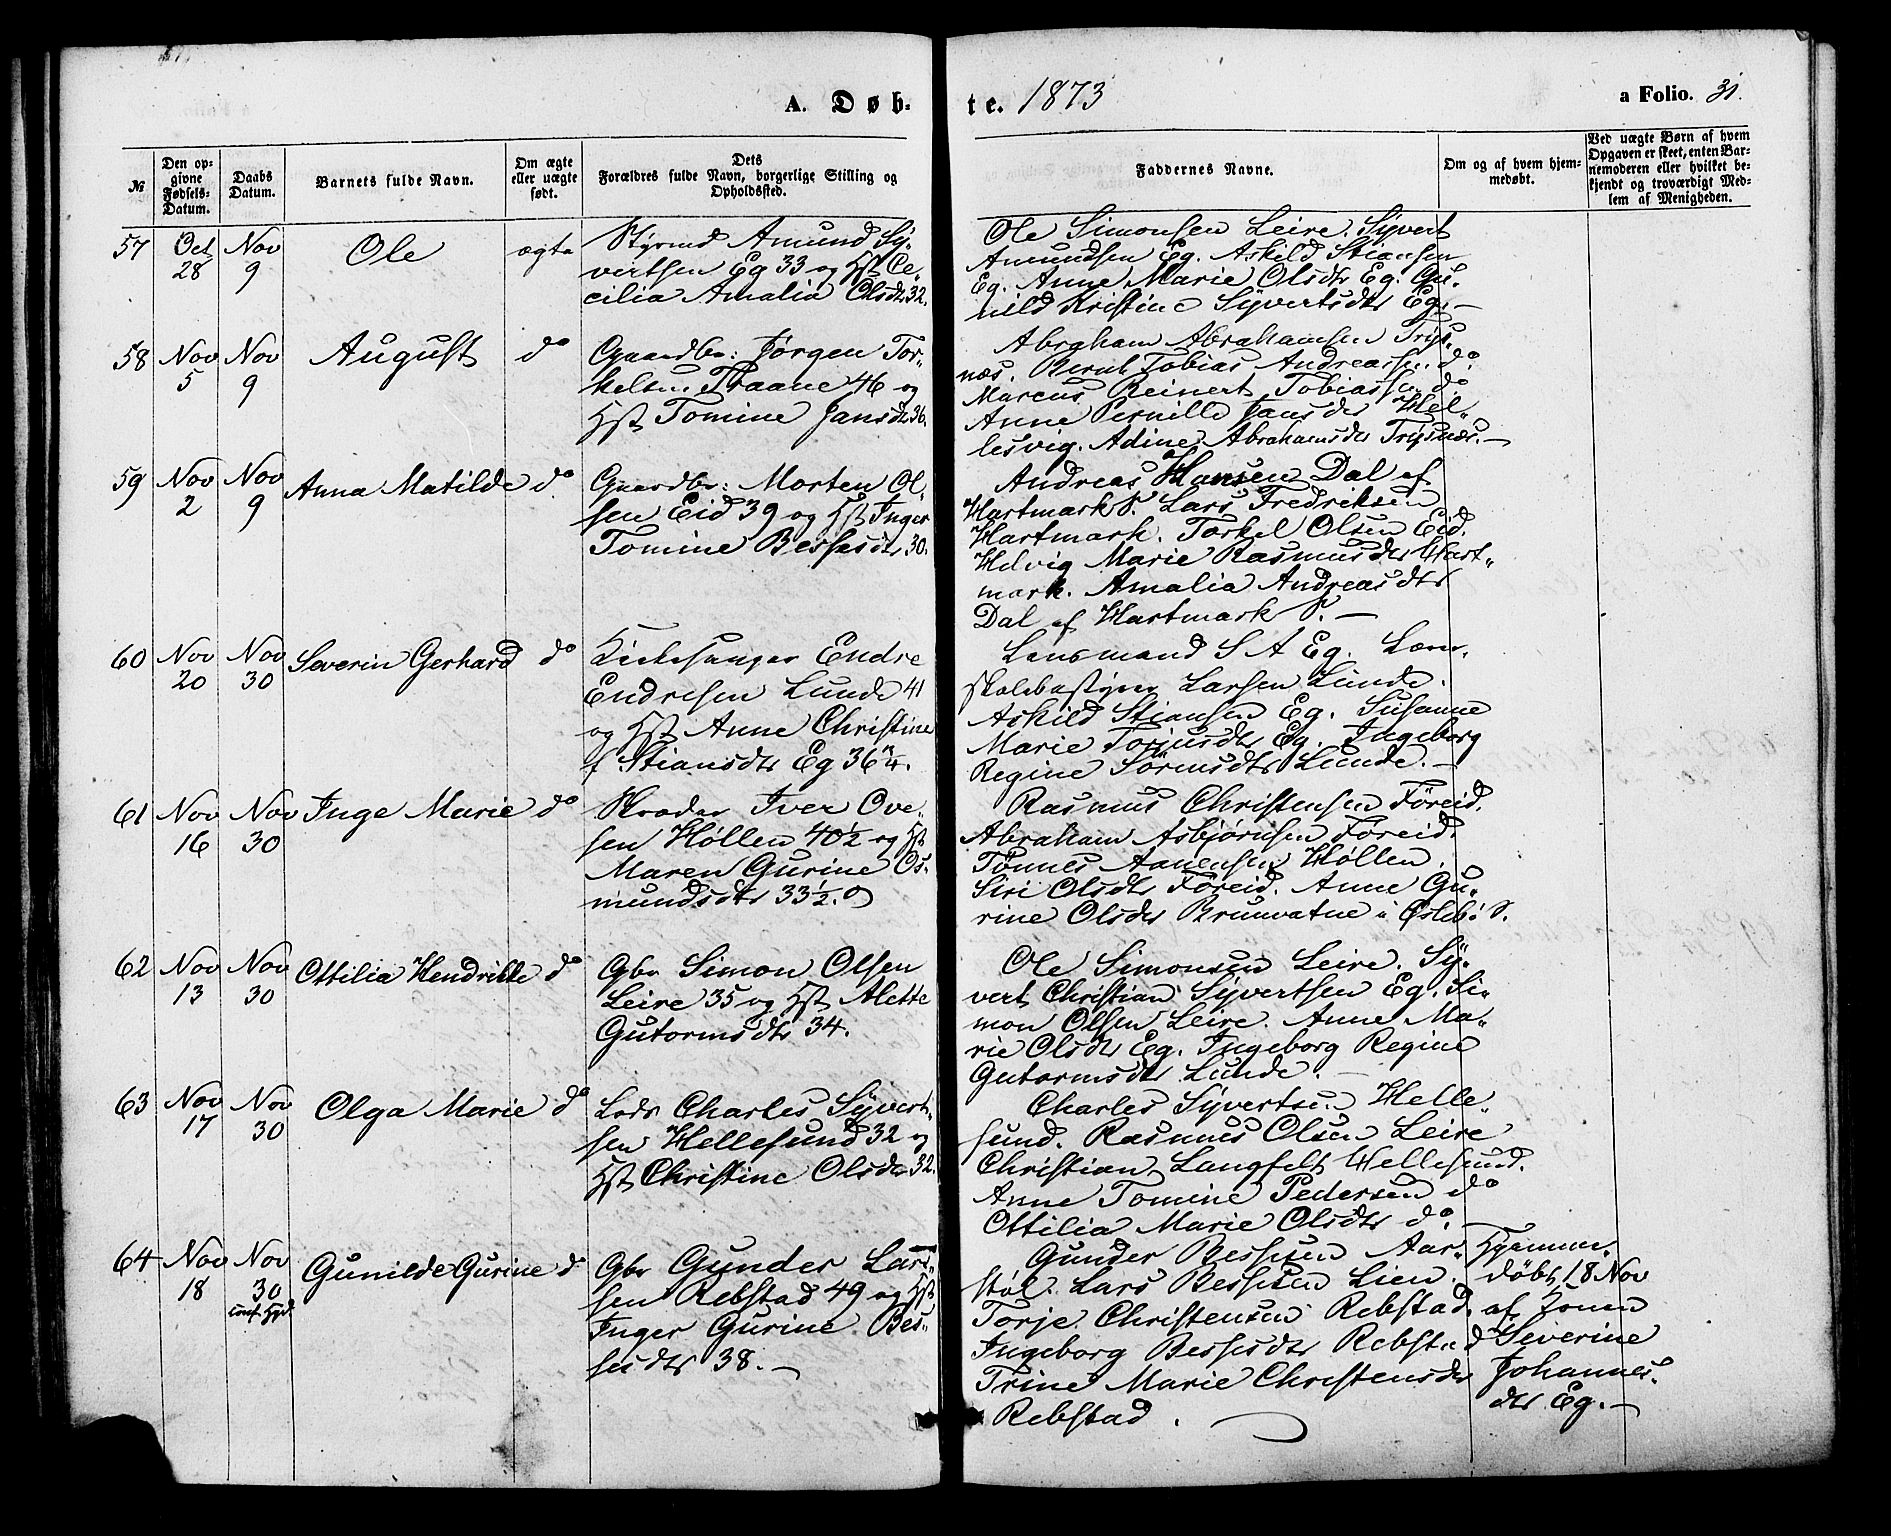 A. Døb- te. 1873 a Folio. 31.
№
Den op-
givne
Fødsels-
Datum.
Daabs
Datum.
Barnets fulde Navn.
Om ægte
eller uægte
født.
Dets
Forældres fulde Navn, borgerlige Stilling og
Opholdssted.
Faddernes Navne.
Om og af hvem hjem-
medøbt.
Ved uægte Børn af hvem
Opgaven er skeet, enten Bar-
nemoderen eller hvilket be-
kjendt og troværdigt Med-
lem af Menigheden.
57 Oct 28 Nov 9 Ole ægte
Styrmd Amund Sy-
vertsen Eg 33 og Hst Ce-
cilia Amalia Olsdtr 32.
Ole Simonsen Leire. Syvert
Amundsen Eg. Askild Stiansen
Eg. Anne Marie Olsdtr Eg. Gu-
nild Kristine Syvertsdtr Eg.—
58 Nov 5 Nov 9 August do
Gaardbr: Jørgen Tor-
kelsen Traane 46 og
Hst Tomine Jansdtr 36.
Abraham Abrahamsen Trys-
næs. Bernt Tobias Andreassen do.
Marcus Reinert Tobiassen do
Anne Pernille Jansdtr Hel-
lesvig. Adine Abrahamsdtr Trysnæs.—
59 Nov 2 Nov 9 Anna Matilde do
Gaardbr: Morten Ol-
sen Eid 39 og Hst Inger
Tomine Bessesdtr 30.
Andreas Hansen Dal af
Hartmark S. Lars Fredriksen
Hartmark. Torkel Olsen Eid.
Hedvig Marie Rasmusdtr Hart-
mark. Amalia Andreasdtr
Dal af Hartmark S.—
60 Nov 20 Nov 30 Severin Gerhard do
Kirkesanger Endre
Endresen Lunde 41
og Hst Anne Christine
f Stiansdtr Eg 36
Lensmand S A Eg. Lærer.
skolebestyrer Larsen Lunde.
Askild Stiansen Eg. Susanne
Marie Torjusdtr Eg. Ingeborg
Regine Lunde.—
61 Nov 16 Nov 30 Inge Marie do
Skrædder Iver Ove-
sen Høllen 40½ og Hst
Maren Gurine Os-
mundsdtr 33½.
Rasmus Christensen Føreid.
Abraham Asbjørnsen Føreid.
Tønnes Aanensen Høllen.
Siri Olsdtr Føreid. Anne Gu-
rine Olsdtr Brunvatne i Øslebø S.
62 Nov 13 Nov 30 Ottilia Hendrikke do
Gbr Simon Olsen
Leire 35 og Hst Alette
Gutormsdtr 34.
Ole Simonsen Leire. Sy-
vert Christian Syvertsen Eg. Si-
mon Olsen Leire. Anne Ma-
rie Olsdtr Eg. Ingeborg Regine
Gutormsdtr Lunde.—
63 Nov 17 Nov 30 Olga Marie do
Lods Charles Syvert-
sen Hellesund 32 og
Hst Christine Olsdtr 32.
Charles Syvertsen Helle-
sund. Rasmus Olsen Leire
Christian Langfelt Hellesund.
Anne Tomine Pedersen do
Ottilia Marie Olsdtr do.—
64 Nov 18 Nov 30 conf. Hjd. Gunilde Gurine d
Gbr Gunder Lars-
sen Rebstad 49 og Hst
Inger Gurine Bes-
sesdtr 38.—
Gunder Bessesen Aar-
støl. Lars Bessesen Lien.
Torje Christensen Rebstad.
Ingeborg Bessesdtr Rebstad
Trine Marie Christensdtr
Rebstad.
Hjemme-
døbt 18 Nov
af Jonen
Severine
Johannes-
dtr Eg.—